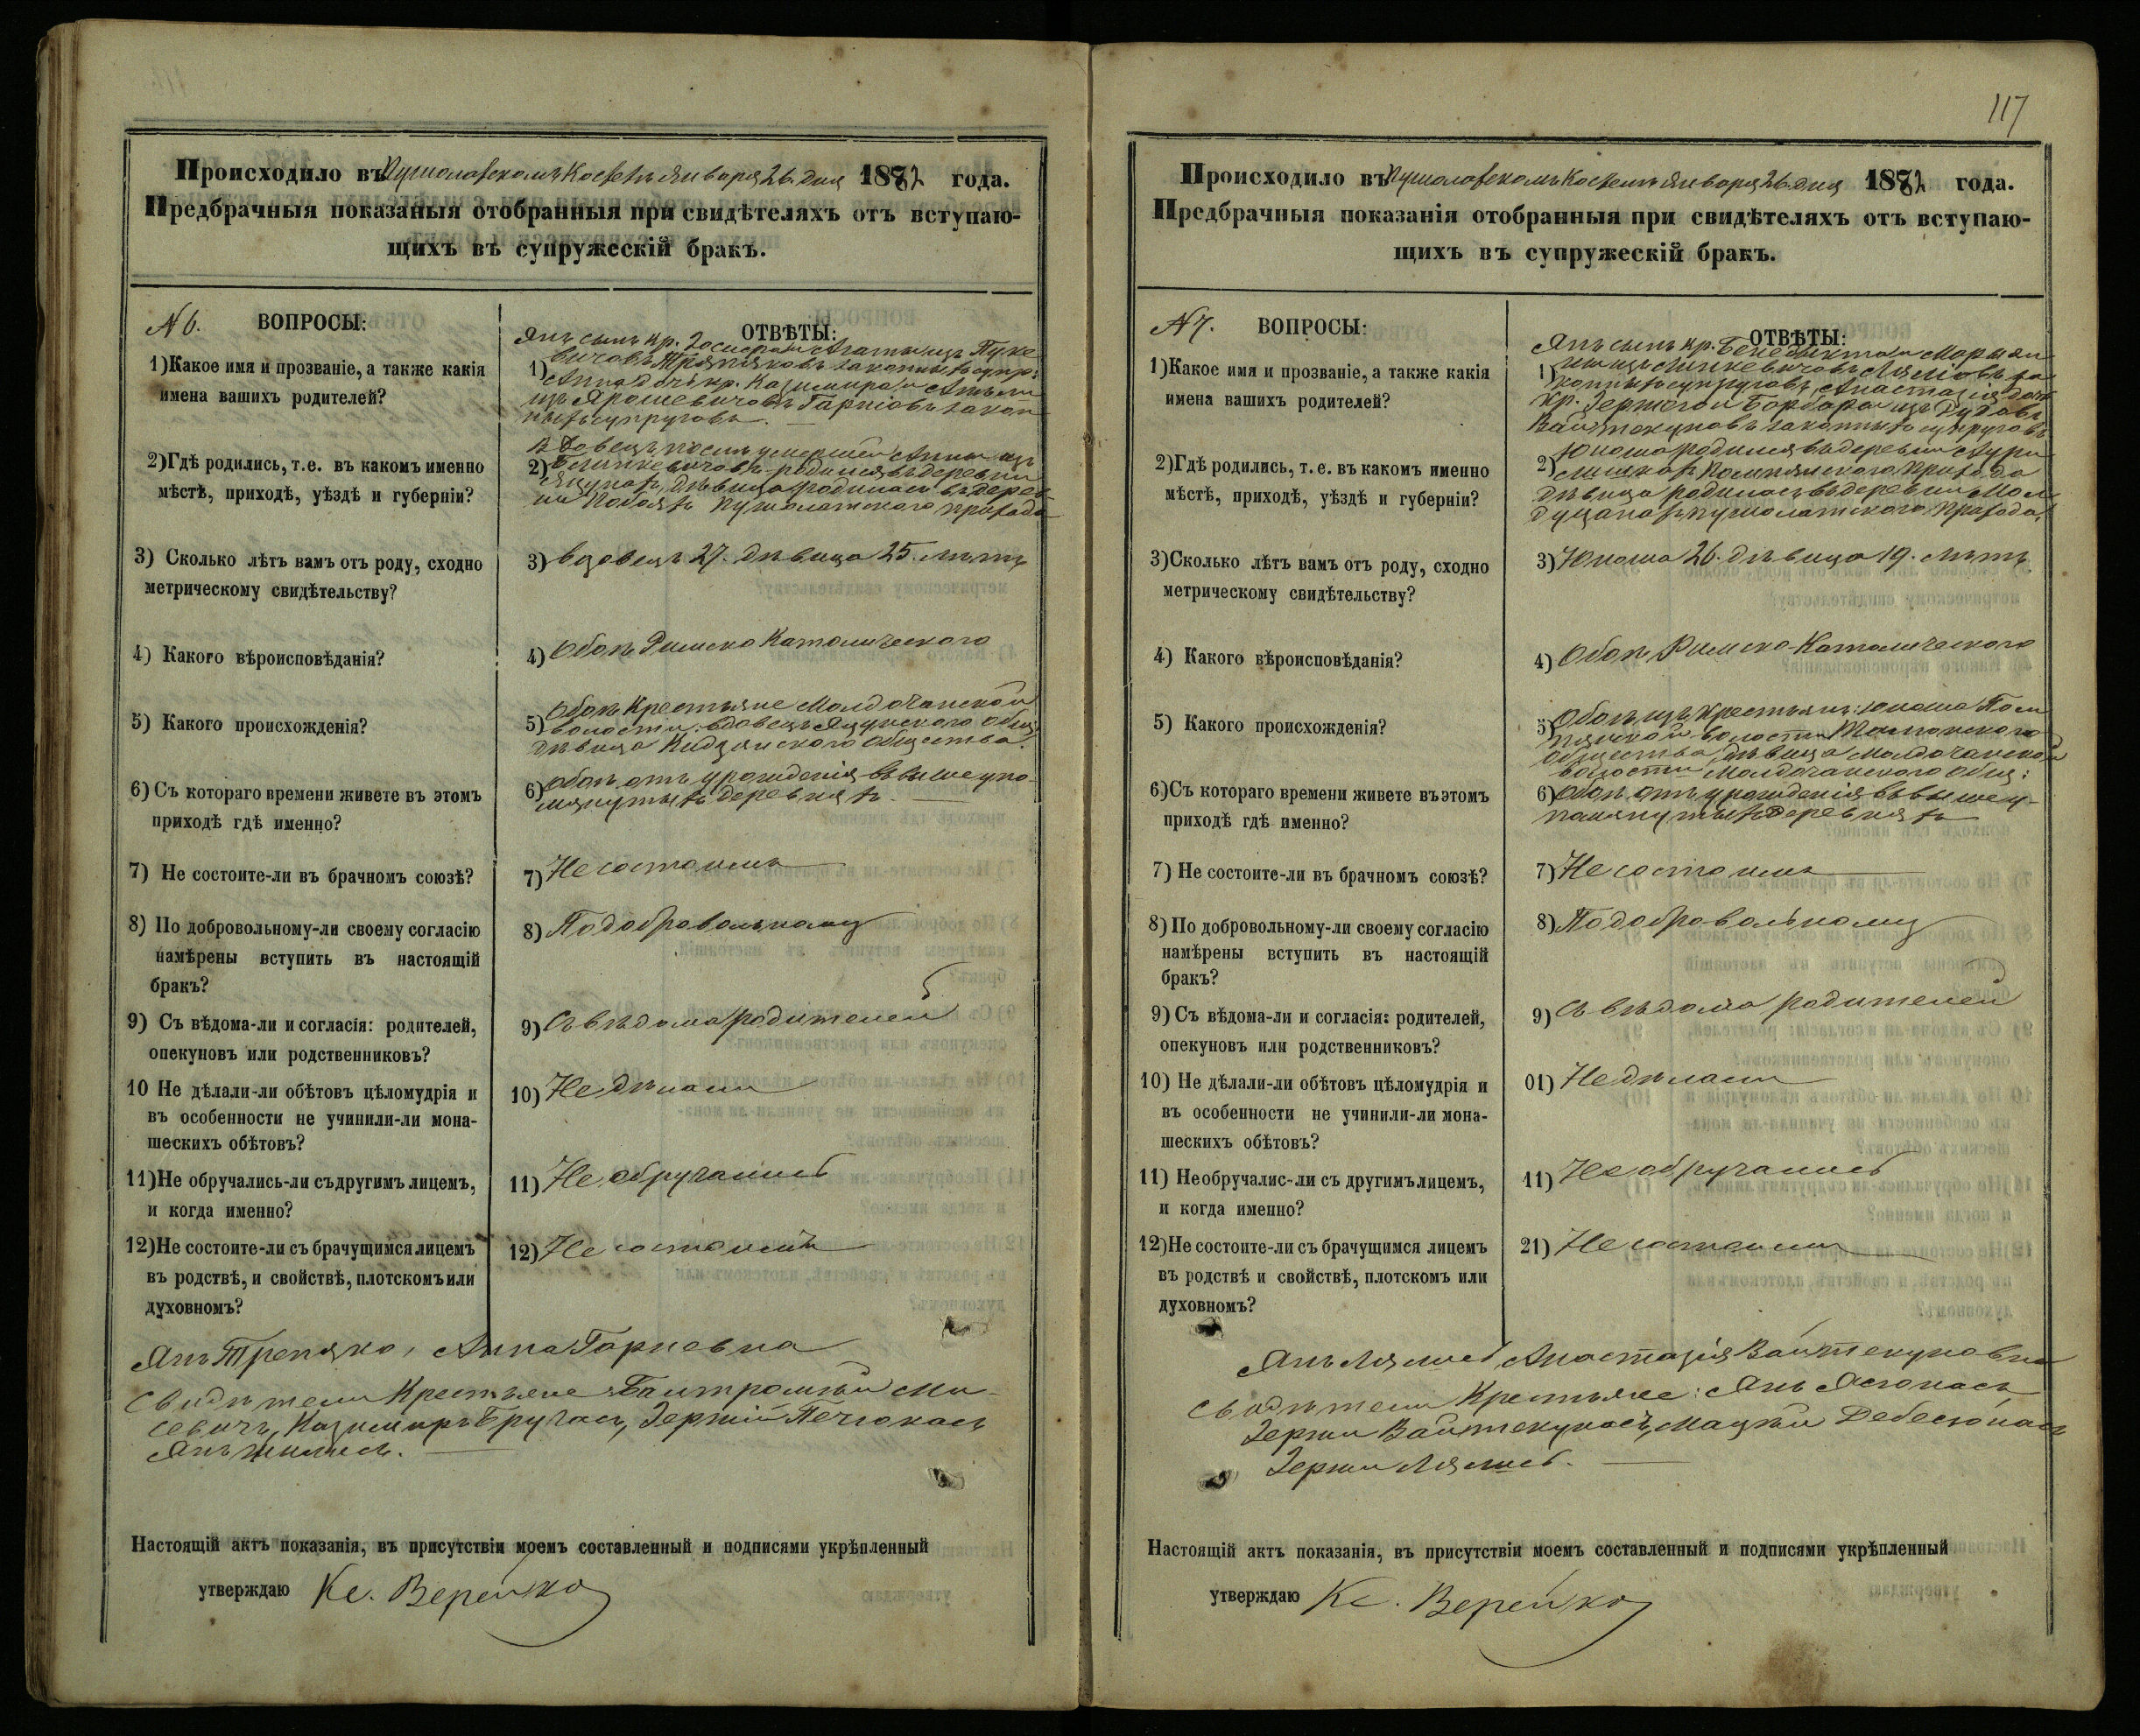 Происходило въ Пушолатскомъ Костелѣ Января 26. дня 1882 года.
Предбрачныя показаныя отобранныя при свидѣтеляхъ отъ вступаю-
щихъ въ супружескій бракъ.
N 6. ВОПРОСЫ:
1)Какое имя и прозваніе, а также какія
имена вашихъ родителей?
2)Гдѣ родились, т.е. въ какомъ именно
мѣстѣ, приходѣ, уѣздѣ и губерніи?
3) Сколько лѣтъ вамъ отъ роду, сходно
метрическому свидѣтельству?
4) Какого вѣроисповѣданія?
5) Какого происхожденія?
6) Съ котораго времени живете въ этомъ
приходѣ гдѣ именно?
7) Не состоите-ли въ брачномъ союзѣ?
8) По добровольному-ли своему согласію
намѣрены вступить въ настоящій
бракъ?
9) Съ вѣдома-ли и согласія: родителей,
опекуновъ или родственниковъ?
10 Не дѣлали-ли обѣтовъ цѣломудрія и
въ особенности не учинили-ли мона-
шескихъ обѣтовъ?
11)Не обручались-ли съ другимъ лицемъ,
и когда именно?
12)Не состоите-ли съ брачущимся лицемъ
въ родствѣ, и свойствѣ, плотскомъ или
духовномъ?
ОТВѢТЫ:
Янъ сынъ кр. Агаты изъ Пуке
вичовъ законныхъ супр:
1) Анна дочь кр. Казимира и
изъ Ярошевичовъ Гарнiовъ закон
ныхъ супруговъ.
Вдовецъ послѣ умершей Анны изъ
2) родился въ деревни
дѣвица родилась въ дерев-
ни Пушолатского прихода
3) вдовецъ 27. дѣвица 25. лѣтъ
4) Обоє Римско Католического
Обоє Крестьяне Молдочанской
5) волости: вдовецъ общ:
дѣвица общества.
6) Обоє отъ урожденія въ вышеупо-
мянутыхъ деревняхъ.
7) Не состоимъ
8) По добровольному
9) Съ вѣдома родителей
10) Не дѣлали
11) Не обручались
12) Не состоимъ
Янъ Трепяко, Анна Гарневна
Свидѣтели Крестьяне Балтромѣй Ми-
севичъ, Казимиръ Бручасъ, Зерній Печюкасъ
Янъ
Настоящій актъ показанія, въ присутствіи моемъ составленный и подписями укрѣпленный
утверждаю Кс. Верейко
117
Происходило въ Пушолатскомъ Костелѣ Января 26. дня 1882 года.
Предбрачныя показанія отобранныя при свидѣтеляхъ отъ вступаю-
щихъ въ супружескій бракъ.
N 7. ВОПРОСЫ:
1)Какое имя и прозваніе, а также какія
имена вашихъ родителей?
2)Гдѣ родились, т. е. въ какомъ именно
мѣстѣ, приходѣ, уѣздѣ и губерніи?
3)Сколько лѣтъ вамъ отъ роду, сходно
метрическому свидѣтельству?
4) Какого вѣроисповѣданія?
5) Какого происхожденія?
6)Съ котораго времени живете въ этомъ
приходѣ гдѣ именно?
7) Не состоите-ли въ брачномъ союзѣ?
8) По добровольному-ли своему согласію
намѣрены вступить въ настоящій
бракъ?
9) Съ вѣдома-ли и согласія: родителей,
опекуновъ или родственниковъ?
10) Не дѣлали-ли обѣтовъ цѣломудрія и
въ особенности не учинили-ли мона-
шескихъ обѣтовъ?
11) Необручалис-ли съ другимъ лицемъ,
и когда именно?
12)Не состоите-ли съ брачущимся лицемъ
въ родствѣ и свойствѣ, плотскомъ или
духовномъ?
ОТВѢТЫ:
Янъ сынъ кр. Бенедыкта и Марьян
1) изъ за
конныхъ супруговъ, Анастазія дочь
кр. и Барбары изъ Дудовъ
Вайтекуновъ законныхъ супруговъ
Юноша родился въ деревни
2) прихода
дѣвица родилась въ деревни Мол
Пушолатского прихода.
3) Юноша 26. дѣвица 19. лѣтъ.
4) Обоє Римско-Католического
5) Обоє изъ крестьянъ: юноша
волости
общества, дѣвица Молдочанской
волости Молдочанского общ:
6) Обоє отъ урожденія въ вышеу-
помянутыхъ деревняхъ
7) Не состоимъ
8) По добровольному
9) Съ вѣдома родителей
01) Не дѣлали
11) Не обручались
21) Не состоимъ
Янъ Лялись, Анастазія Вайтекуновна
Свидѣтели Крестьяне: Янъ
Вайтекунасъ, Мацѣй
Лялись.
Настоящій актъ показанія, въ присутствіи моемъ составленный и подписями укрѣпленный
утверждаю Кс. Верейко